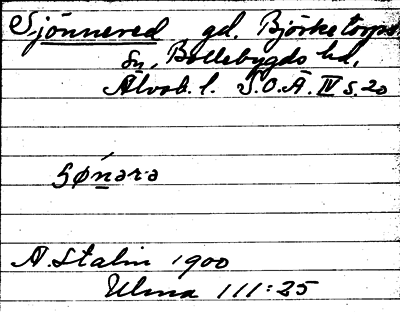 Sjönnered gd. Björketorps
sn, Bollebygds hd,
Älvsb. l. S.O.Ä. IV s. 20
A. Stalin 1900
Ulma 111:25